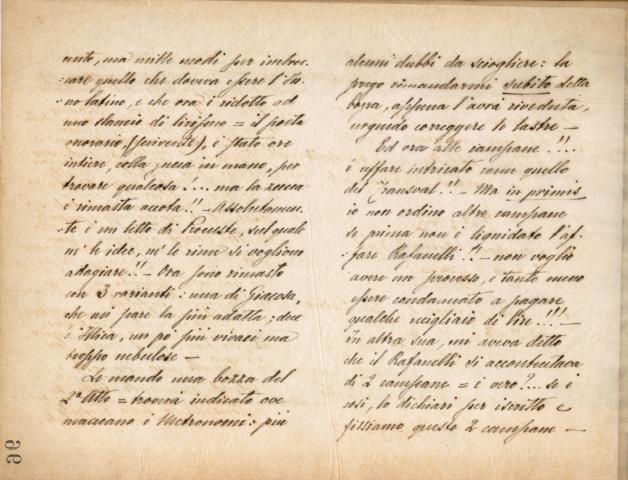 unto, ma mille modi per imbroc-
care quello che doveva essere l'In-
no latino, e che ora è ridotto ad
uno slancio di lirismo = il poeta
onorario, (scrivente), è stato ore
intiere, colla zucca in mano, per
trovare qualcosa .... ma la zucca
è rimasta vuota!! - Assolutamen-
te è un letto di Procuste, sul quale
nè le idee, nè le rime si vogliono
adagiare!! - Ora sono rimasto
con 3 varianti: una di Giacosa,
che mi pare la più adatta; due
d'Illica, un pò più vivaci ma
troppo nebulose -
Le mando una bozza del
2º Atto = troverà indicato ove
mancano i Metronomi: più
alcuni dubbi da sciogliere: la
prego rimandarmi subito detta
boza, appena l'avrà riveduta,
urgendo correggere le lastre -
Ed ora alle campane !!...
è affare intricato come quello
del Transval!! - Ma in primis
io non ordino altre campane
se prima non è liquidato l'af-
fare Rafanelli!! - non voglio
avere un processo, e tanto meno
essere condannato a pagare
qualche migliaio di lire!!! -
in altra sua, mi aveva detto
che il Rafanelli si accontentava
di 2 campane = è vero?... se è
così, lo dichiari per iscritto e
fissiamo queste 2 campane -
96